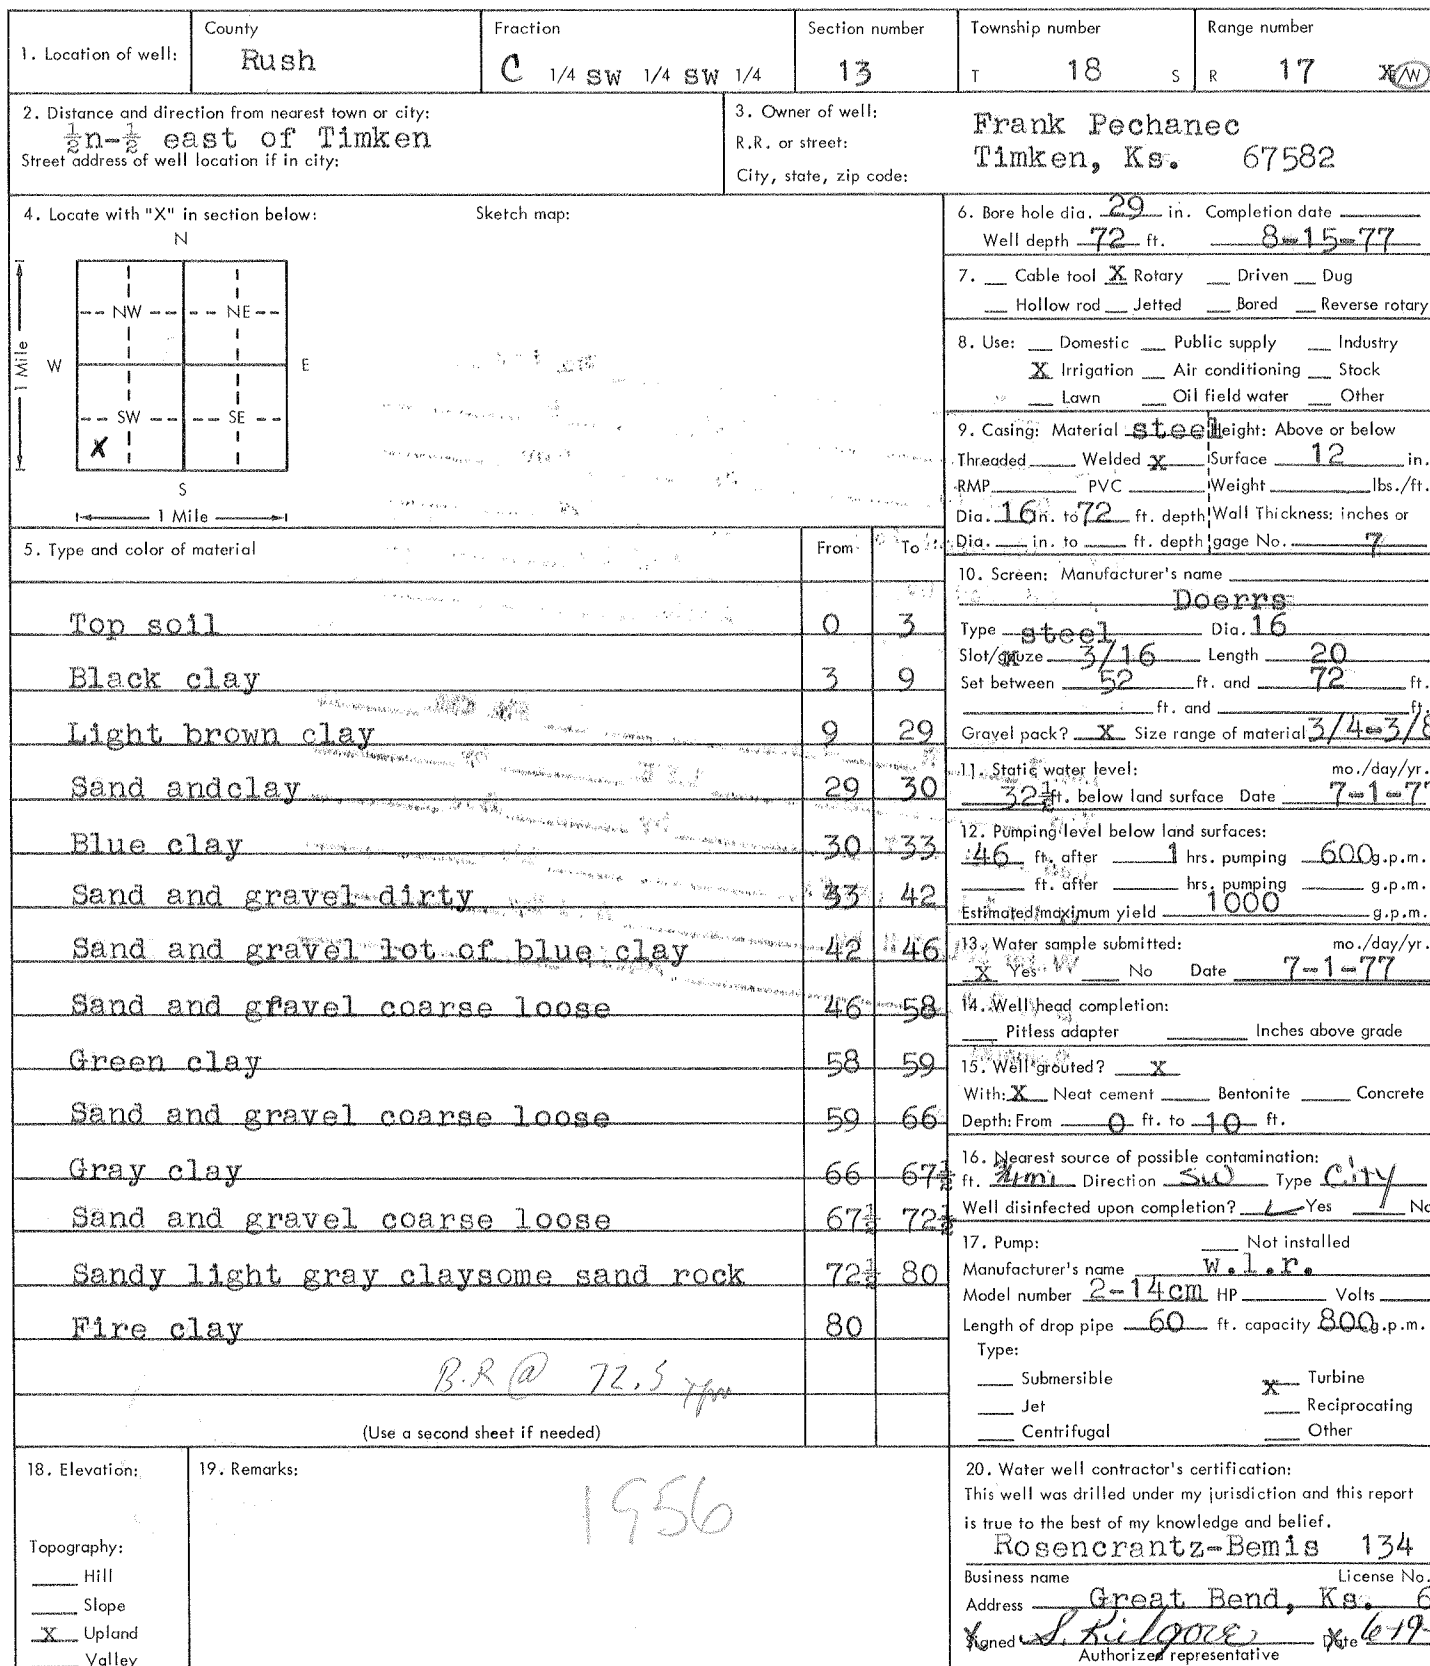 1. Location of well:
County
Rush
Fraction
C 1/4 SW 1/4 SW 1/4
Section number
13
Township number
T 18 S
Range number
R 17 X/W
2. Distance and direction from nearest town or city:
½n-½ east of Timken
Street address of well location if in city:
3. Owner of well:
R.R. or street:
City, state, zip code:
Frank Pechanec
Timken, Ks. 67582
4. Locate with "X" in section below:
Sketch map:
N
NW NE
W E
SW SE
X
S
1 Mile
1 Mile
5. Type and color of material From To
Top soil 0 3
Black clay 3 9
Light brown clay 9 29
Sand andclay 29 30
Blue clay 30 33
Sand and gravel dirty 33 42
Sand and gravel lot of blue clay 42 46
Sand and gravel coarse loose 46 58
Green clay 58 59
Sand and gravel coarse loose 59 66
Gray clay 66 67½
Sand and gravel coarse loose 67½ 72½
Sandy light gray claysome sand rock 72½ 80
Fire clay 80
B.R @ 72.5
(Use a second sheet if needed)
6. Bore hole dia. 29 in. Completion date
Well depth 72 ft. 8-15-77
7. Cable tool X Rotary Driven Dug
Hollow rod Jetted Bored Reverse rotary
8. Use: Domestic Public supply Industry
X Irrigation Air conditioning Stock
Lawn Oil field water Other
9. Casing: Material steel Height: Above or below
Threaded Welded X Surface 12 in.
RMP PVC Weight lbs./ft.
Dia. 16 in. to 72 ft. depth Wall Thickness: inches or
Dia. in. to ft. depth gage No. 7
10. Screen: Manufacturer's name
Doerrs
Type steel Dia. 16
Slot/gauze 3/16 Length 20
Set between 52 ft. and 72 ft.
ft. and ft.
Gravel pack? X Size range of material 3/4-3/8
11. Static water level: mo./day/yr.
32½ ft. below land surface Date 7-1-77
12. Pumping level below land surfaces:
46 ft. after 1 hrs. pumping 600 g.p.m.
ft. after hrs. pumping g.p.m.
Estimated maximum yield 1000 g.p.m.
13. Water sample submitted: mo./day/yr.
X Yes No Date 7-1-77
14. Well head completion:
Pitless adapter Inches above grade
15. Well grouted? X
With: X Neat cement Bentonite Concrete
Depth: From 0 ft. to 10 ft.
16. Nearest source of possible contamination:
ft. 3/4mi Direction SW Type City
Well disinfected upon completion? Yes No
17. Pump: Not installed
Manufacturer's name w.l.r.
Model number 2-14cm HP Volts
Length of drop pipe 60 ft. capacity 800 g.p.m.
Type:
Submersible X Turbine
Jet Reciprocating
Centrifugal Other
18. Elevation:
Topography:
Hill
Slope
X Upland
Valley
19. Remarks:
1956
20. Water well contractor's certification:
This well was drilled under my jurisdiction and this report
is true to the best of my knowledge and belief.
Rosencrantz-Bemis 134
Business name License No.
Address Great Bend, Ks. 6
Signed S. Kilgore Date 6-19-
Authorized representative